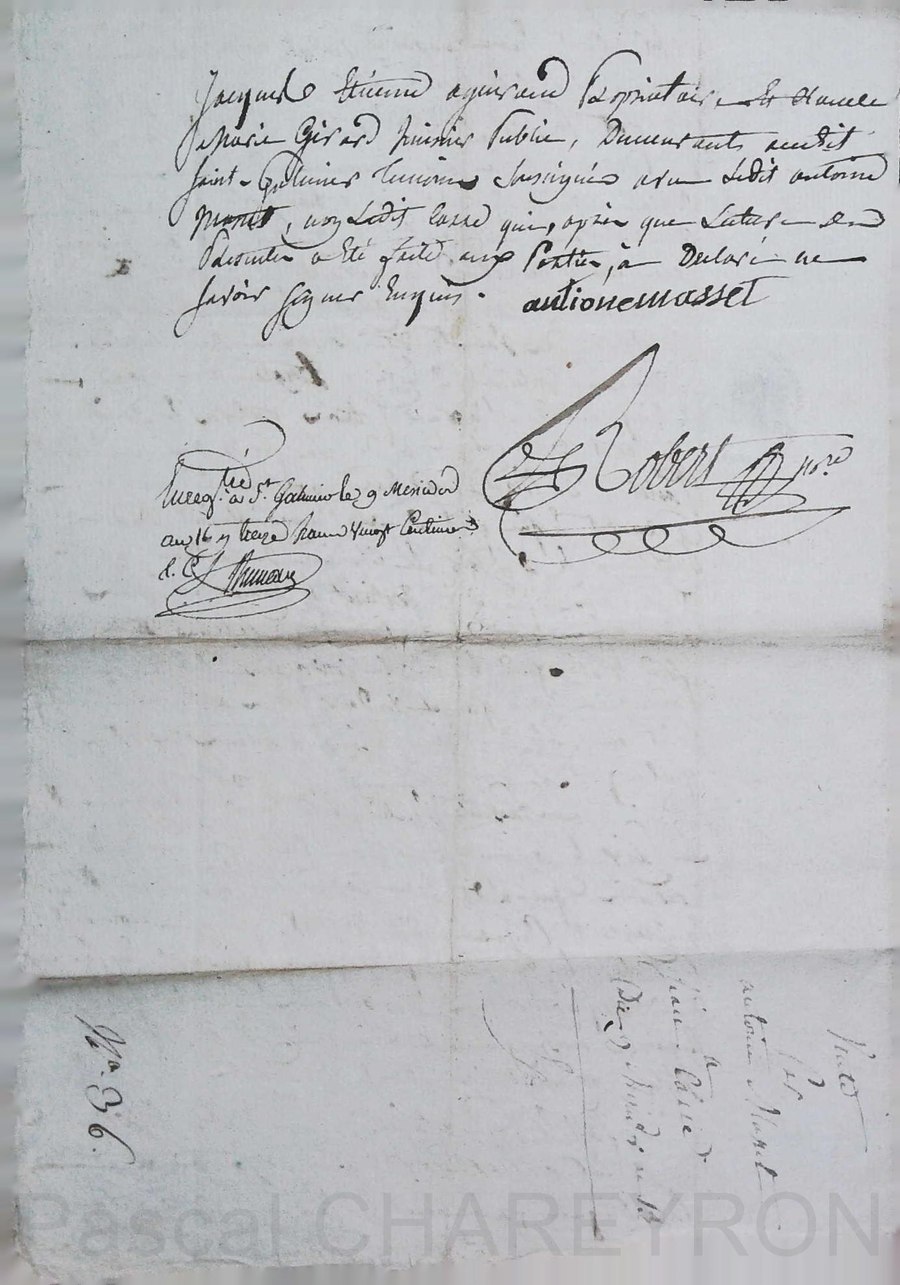 Jacques Etienne propriétaire Et Claude
Marie Girard Public, Demeurants audit
Saint-Galmier Temoins Soussignés avec Ledit antoine
Masset, non Ledit Casse qui, après que Lecture Des
Présentes a Eté faite aux Parties, a Declaré ne
Savoir Signer Enquis.
antionemasset
Robert nore
Enregtré a St Galmier le 9 Messidor
an reçu franc vingt Centimes
No. 36.
Vente
par
antoine Masset
a
Jean Casse
Pascal CHAREYRON